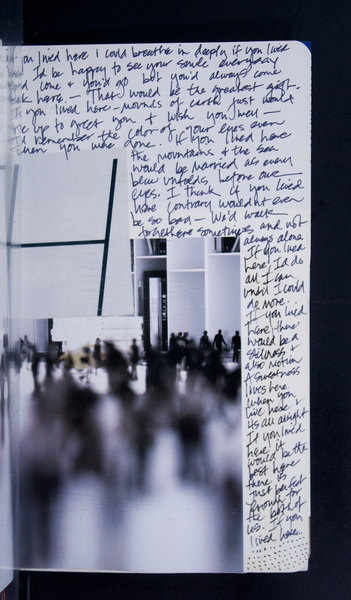 you lived here i could breathe in deeply if you lived
I'd be happy to see your smile everyday
come & you'd go but you'd always come
back here — That would be the greatest gift.
If you lived here — mounds of earth just would
up to greet you & wish you well —
I'd remember the color of your eyes even
when you were gone. If you lived here
the mountains & the sea
would be married as every
blew unfolds before our
eyes. I think if you lived
here contrary wouldn't even
be so bad — We'd walk
together sometimes and not
always alone
If you lived
here I'd do
all I can
until I could
do more...
If you lived
here there
would be a
stillness &
also motion
A sweetness
lives here
when you
live here &
its all alright
If you lived
here it
would be the
best here
there is
Just perfect
enough for
the both of
us. If you
lived here...